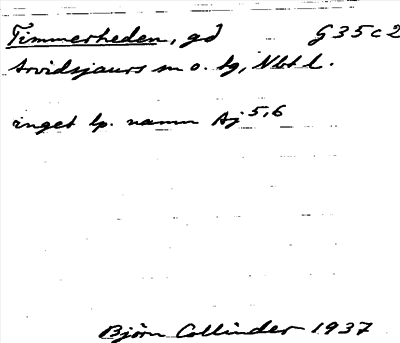 Timmerheden, gd G 35 c 2
Arvidsjaurs sn o. tg, Nbtl.
inget lp. namn Aj 5,6
Björn Collinder 1937